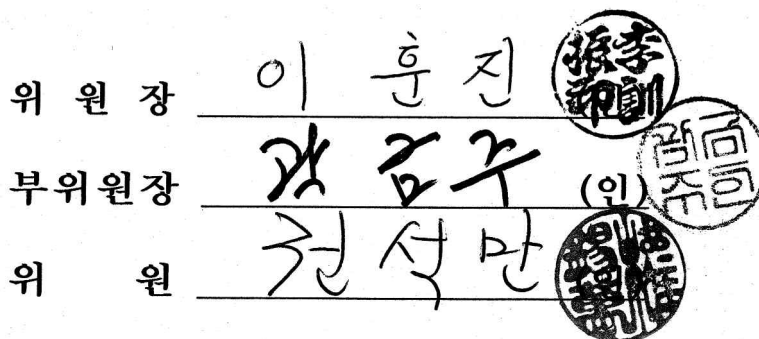 위 원 장 이 훈 진 李訓振印
부위원장 곽 금 주 (인)
위 원 권 석 만